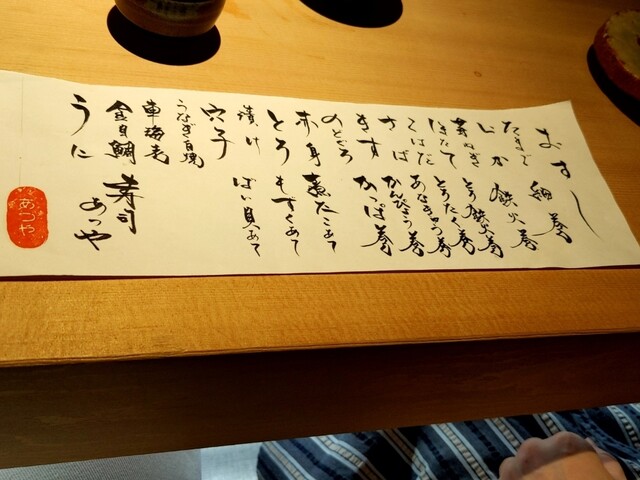 おすし
たまご
いか
芽ねぎ
ほたて
こはだ
さば
きす
のどぐろ
赤身
とろ
漬け
穴子
うなぎ白焼
車海老
金目鯛
うに
細巻
鉄火巻
とろ鉄火巻
とろたく巻
あなきゅう巻
かんぴょう巻
かっぱ巻
煮だこあて
もずくあて
ばい貝あて
寿司
あつや
あつや